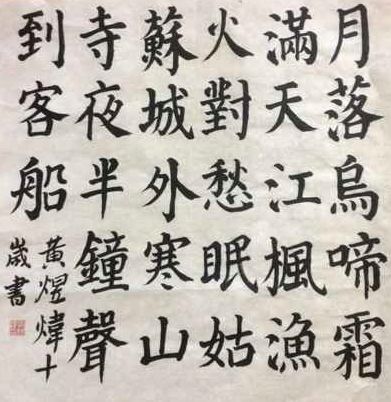 月落烏啼霜
滿天江楓漁
火對愁眠姑
蘇城外寒山
寺夜半鐘聲
到客船
黃煜煒十
歲書